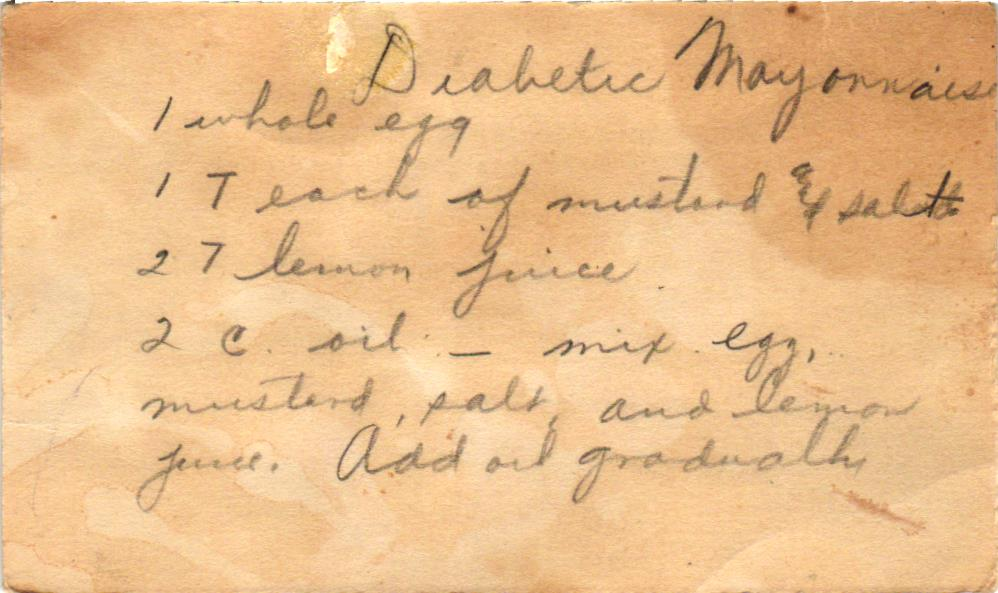 Diabetic Mayonnaise
1 whole egg
1 T each of mustard & salt
2 T lemon juice
2 c. oil - mix egg,
mustard, salt, and lemon
juice. Add oil gradually